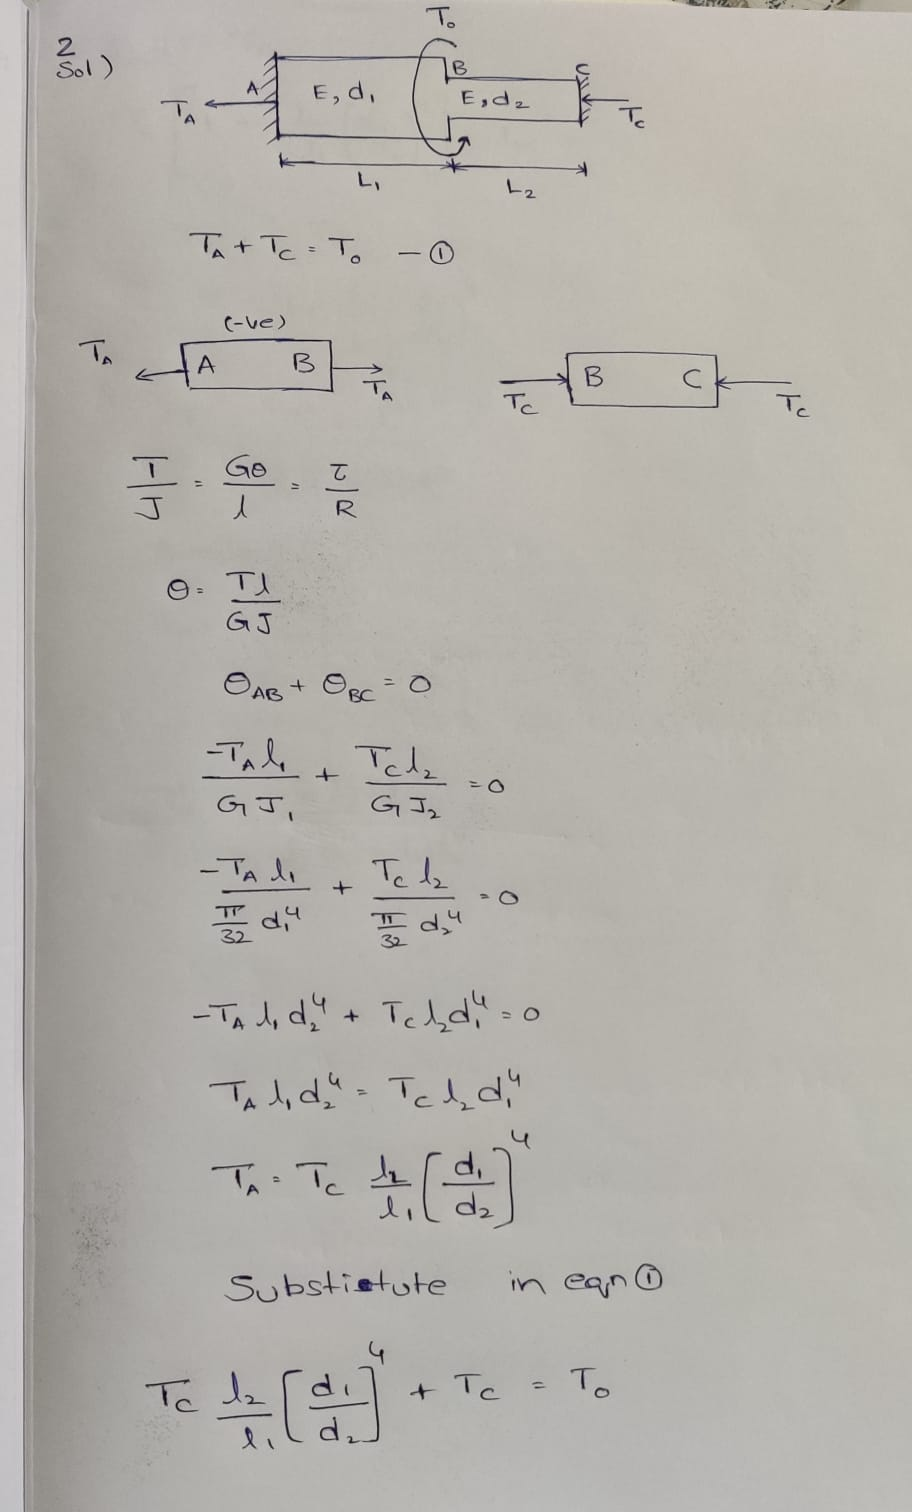 2
Sol)
T₀
A B C
T_A E, d₁ E, d₂ T_C
L₁ L₂
T_A + T_C = T₀ — ①
(-ve)
T_A A B T_A T_C B C T_C
T/J = Gθ/l = τ/R
θ = Tl/GJ
θ_AB + θ_BC = 0
-T_A l₁/GJ₁ + T_C l₂/GJ₂ = 0
-T_A l₁/(π/32 d₁⁴) + T_C l₂/(π/32 d₂⁴) = 0
-T_A l₁ d₂⁴ + T_C l₂ d₁⁴ = 0
T_A l₁ d₂⁴ = T_C l₂ d₁⁴
T_A = T_C l₂/l₁ [d₁/d₂]⁴
Substitute in eqn ①
T_C l₂/l₁ [d₁/d₂]⁴ + T_C = T₀